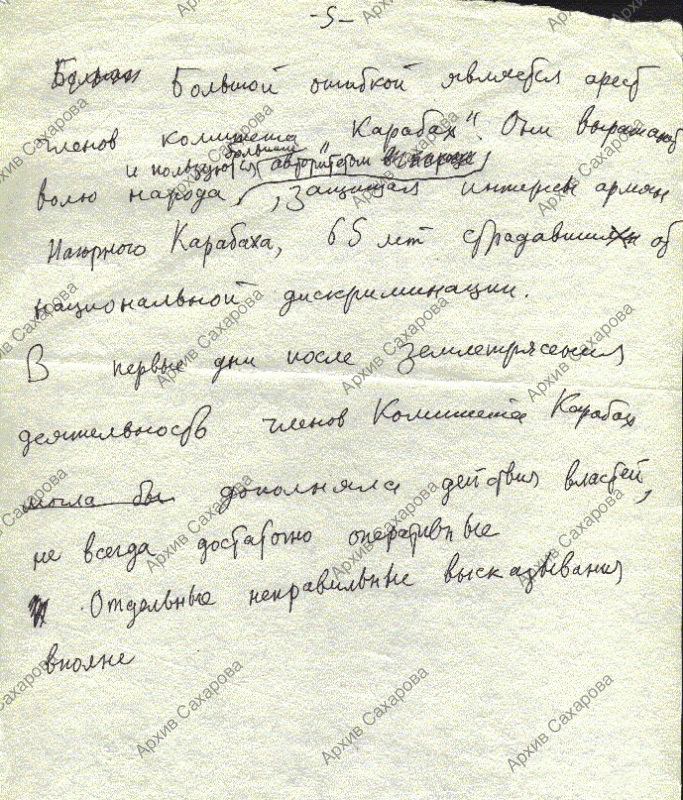 -5-
Большой ошибкой является арест
членов комитета "Карабах". Они выражают
и пользуются большим авторитетом в народе
волю народа, защищая интересы армян
Нагорного Карабаха, 65 лет страдавших от
национальной дискриминации.
В первые дни после землетрясения
деятельность членов Комитета Карабах
могла бы дополняла действия властей,
не всегда достаточно оперативные
Отдельные неправильные высказывания
вполне
Архив Сахарова